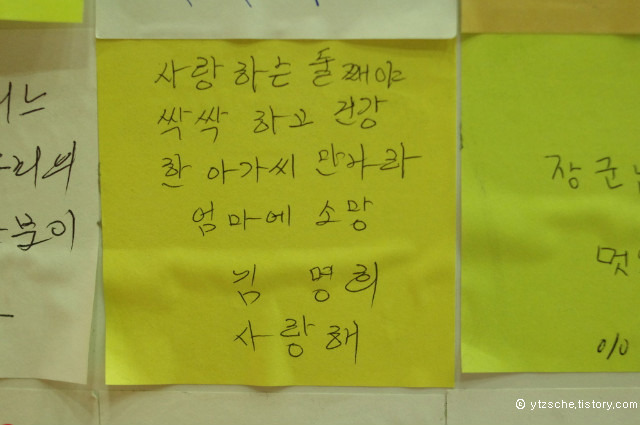 사랑하는 둘째야
싹싹 하고 건강
한 아가씨 만나라
엄마에 소망
님 명희
사랑해
리의
분이
장군
멋
% 
© ytzsche.tistory.com